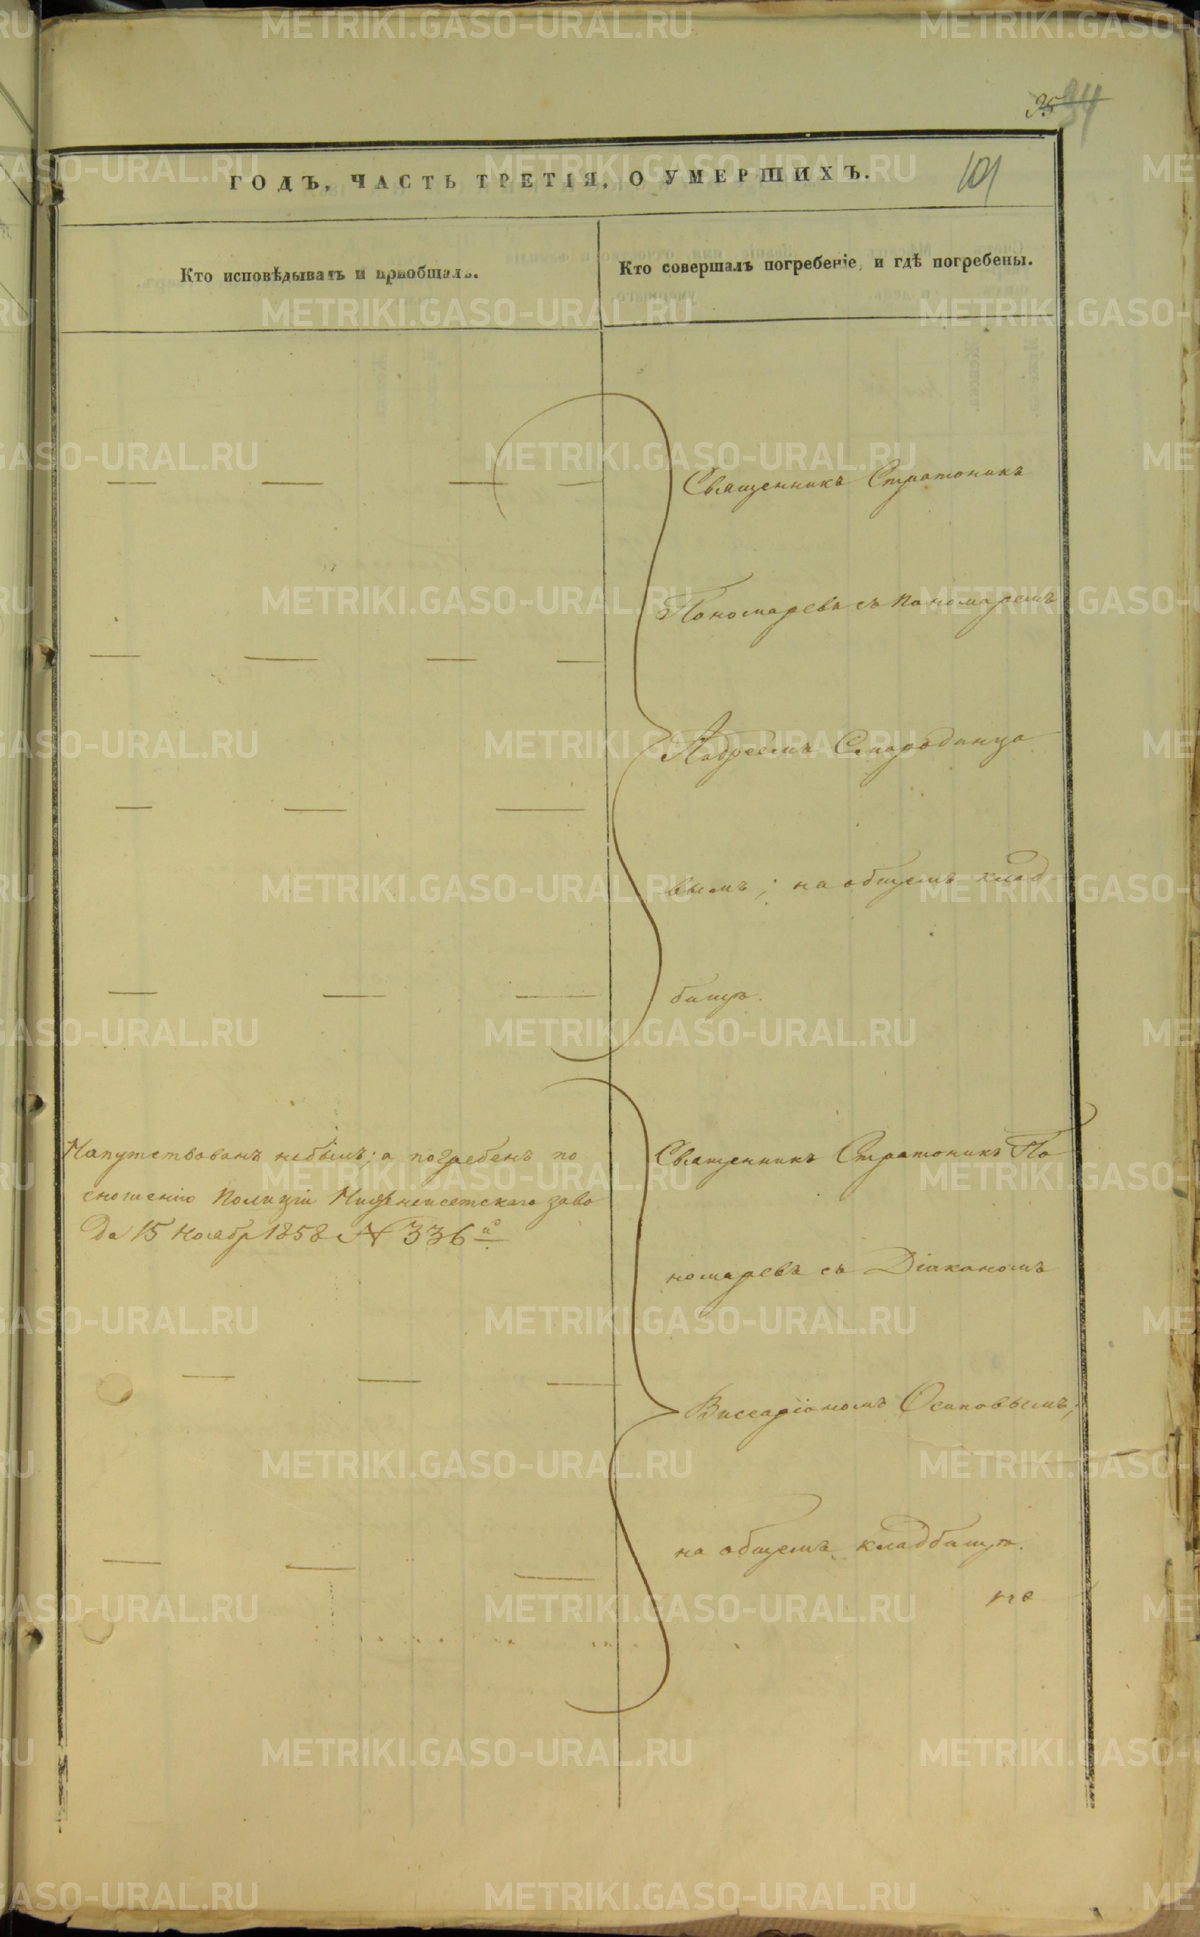 34
101
ГОДЪ, ЧАСТЬ ТРЕТІЯ, О УМЕРШИХЪ.
Кто исповѣдывалъ и пріобщалъ.
Кто совершалъ погребеніе, и гдѣ погребены.
Священникъ Стратоникъ
Пономаревъ съ пономаремъ
Андреемъ
вымъ; на общемъ клад
бищѣ.
Напутствованъ небылъ; а погребенъ по
сношенію Полиціи Нижнеисетскаго заво
да 15 Ноябр 1858 № 336
Священникъ Стратоникъ По
номаревъ съ Діакономъ
Виссаріономъ Осиповымъ;
на общемъ кладбищѣ.
METRIKI.GASO-URAL.RU